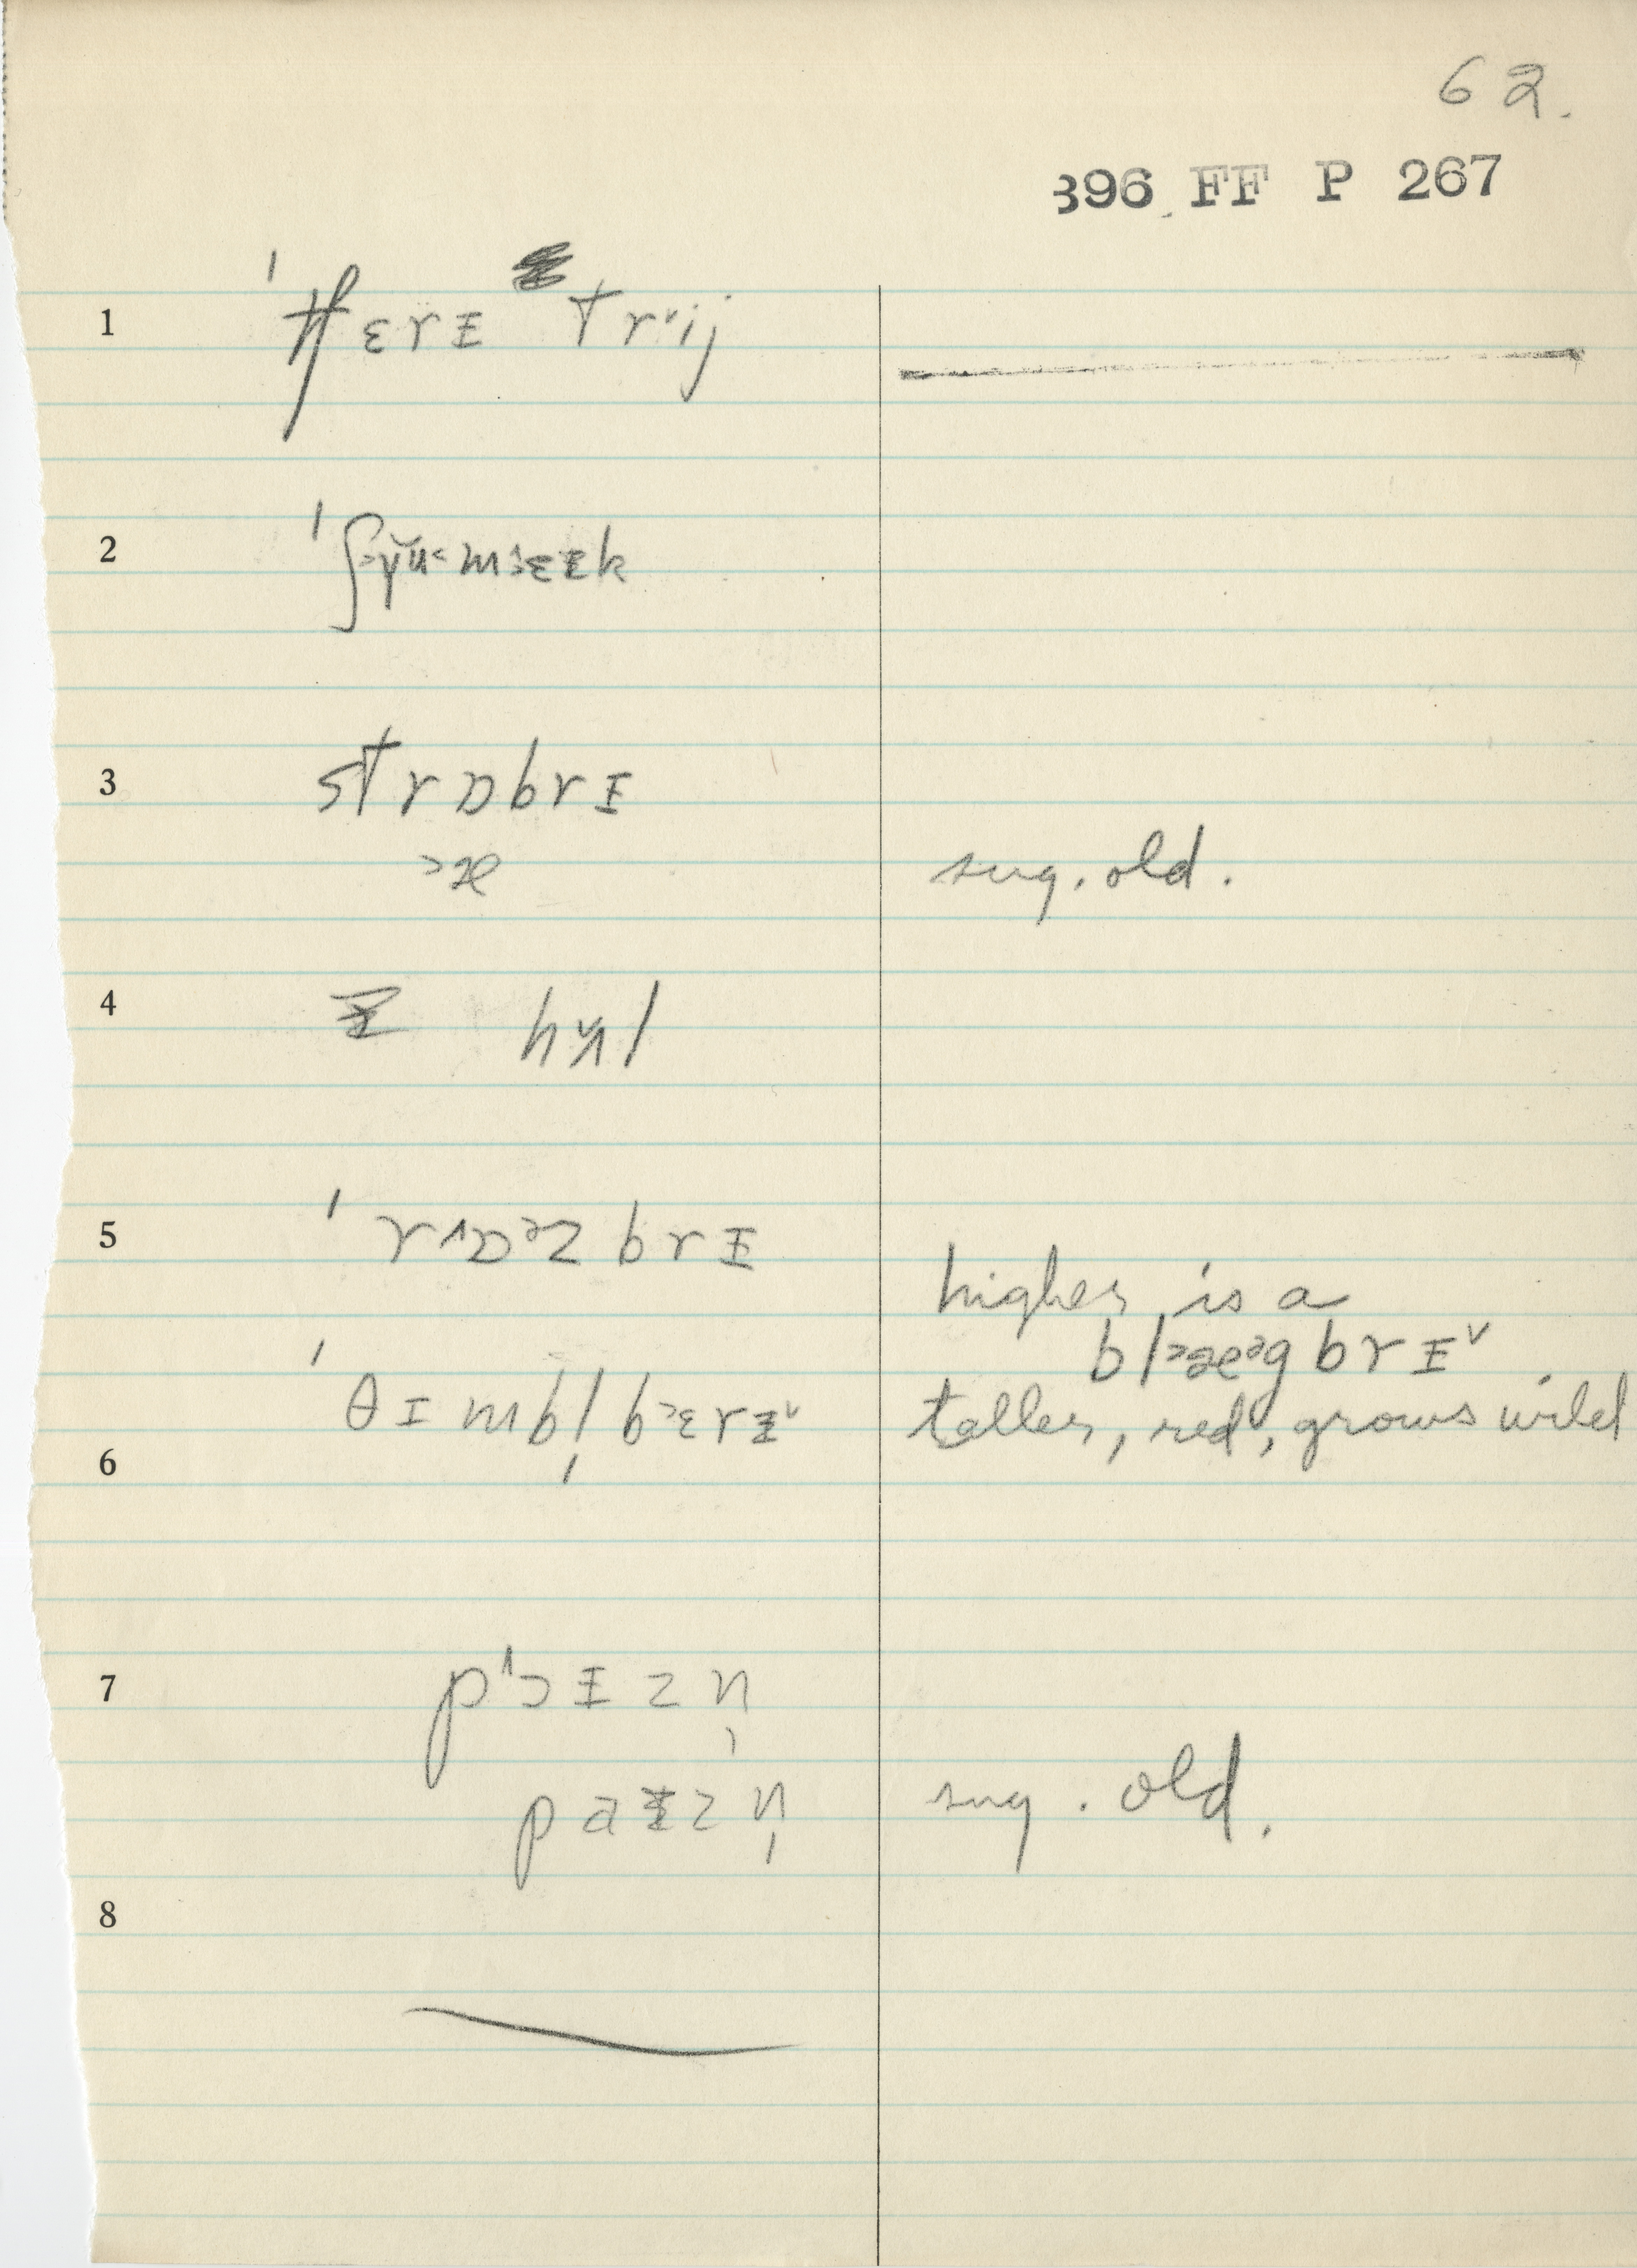 62.
396 FF P 267
1 ˈtʃɛrɪ trᵛij
2 ˈʃ˃ɣ̆u˂mɜɛɪk
3 strɒbrɪ
˃æ sug. old.
4 hʌl
5 ˈr^ɒᵊzbrɪ
higher is a
bl˃æᵊgbrɪᵛ
6 ˈθɪmbl̩b˃ɛrɪᵛ taller, red, grows wild
7 pʻɔɪzn̩
paɪzn̩ sug. old.
8